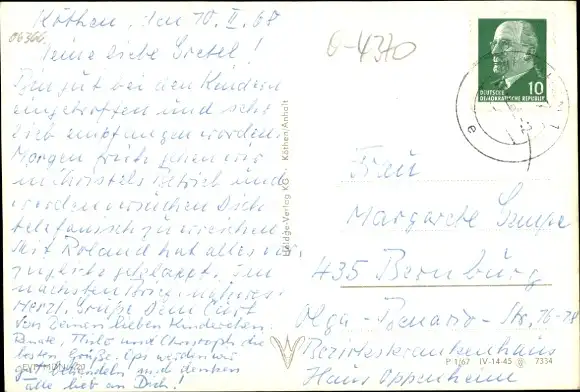 Köthen, den 10. II. 68
06366
Meine liebe Gretel!
Bin gut bei den Kindern
eingetroffen und sehr
lieb empfangen worden.
Morgen früh gehen wir
in Christels Betrieb und
werden versuchen Dich
telefonisch zu erreichen.
Mit Roland hat alles vor-
züglich geklappt. Im
nächsten Brief mehr
Herzl. Grüße Dein Curt
Von Deinen lieben Kinderchen
Renate, Thilo und Christoph die
besten Grüße.
alle lieb an Dich!
Heldge-Verlag KG Köthen/Anhalt
6-4370
10
DEUTSCHE
DEMOKRATISCHE REPUBLIK
e
Frau
Margarete
435 Bernburg
Olga-Benario-Str. 16-18
Bezirkskrankenhaus
P 1/67 IV-14-45 7334
Haus Oppenheim